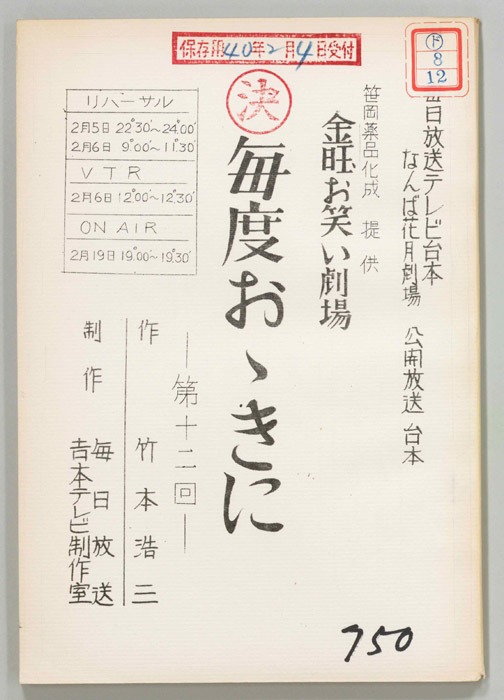 保存用40年2月4日受付
㋣
8
12
毎日放送テレビ台本
なんば花月劇場 公開放送 台本
笹岡薬品化成 提供
金旺お笑い劇場
決
毎度おゝきに
―第十二回―
作 竹本浩三
制作 毎日放送
吉本テレビ制作室
リハーサル
2月5日 22°30'~24°00'
2月6日 9°00'~11°30'
VTR
2月6日 12°00'~12°30'
ON AIR
2月19日 19°00'~19°30'
750